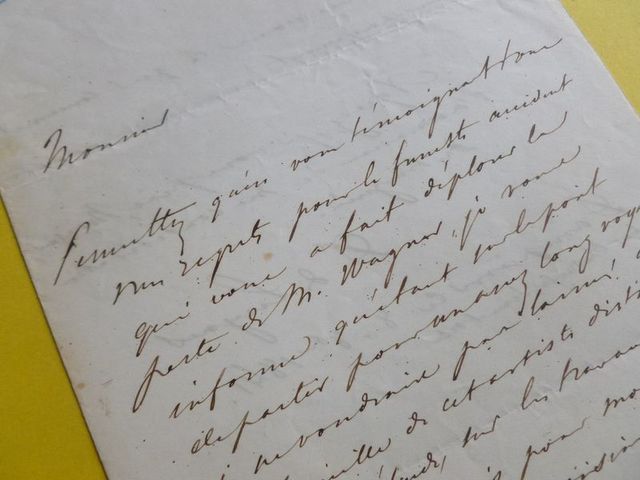 Monsieur
Permettez qu'en vous témoignant tous
mes regrets pour le funeste accident
qui vous a fait déplorer la
perte de M. Wagner, je vous
informe qu'étant sur le point
de partir pour un assez long voya
je ne voudrais pas laisser
famille de cet artiste disti
sur les travau
pour mo